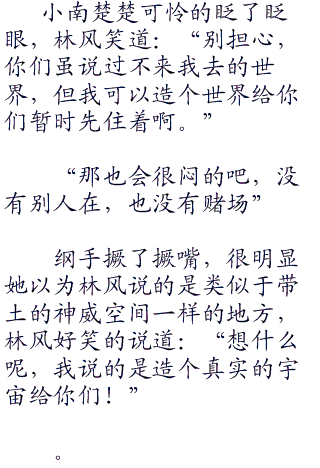 小南楚楚可怜的眨了眨
眼，林风笑道：“别担心，
你们虽说过不来我去的世
界，但我可以造个世界给你
们暂时先住着啊。”
“那也会很闷的吧，没
有别人在，也没有赌场”
纲手撅了撅嘴，很明显
她以为林风说的是类似于带
土的神威空间一样的地方，
林风好笑的说道：“想什么
呢，我说的是造个真实的宇
宙给你们！”
。